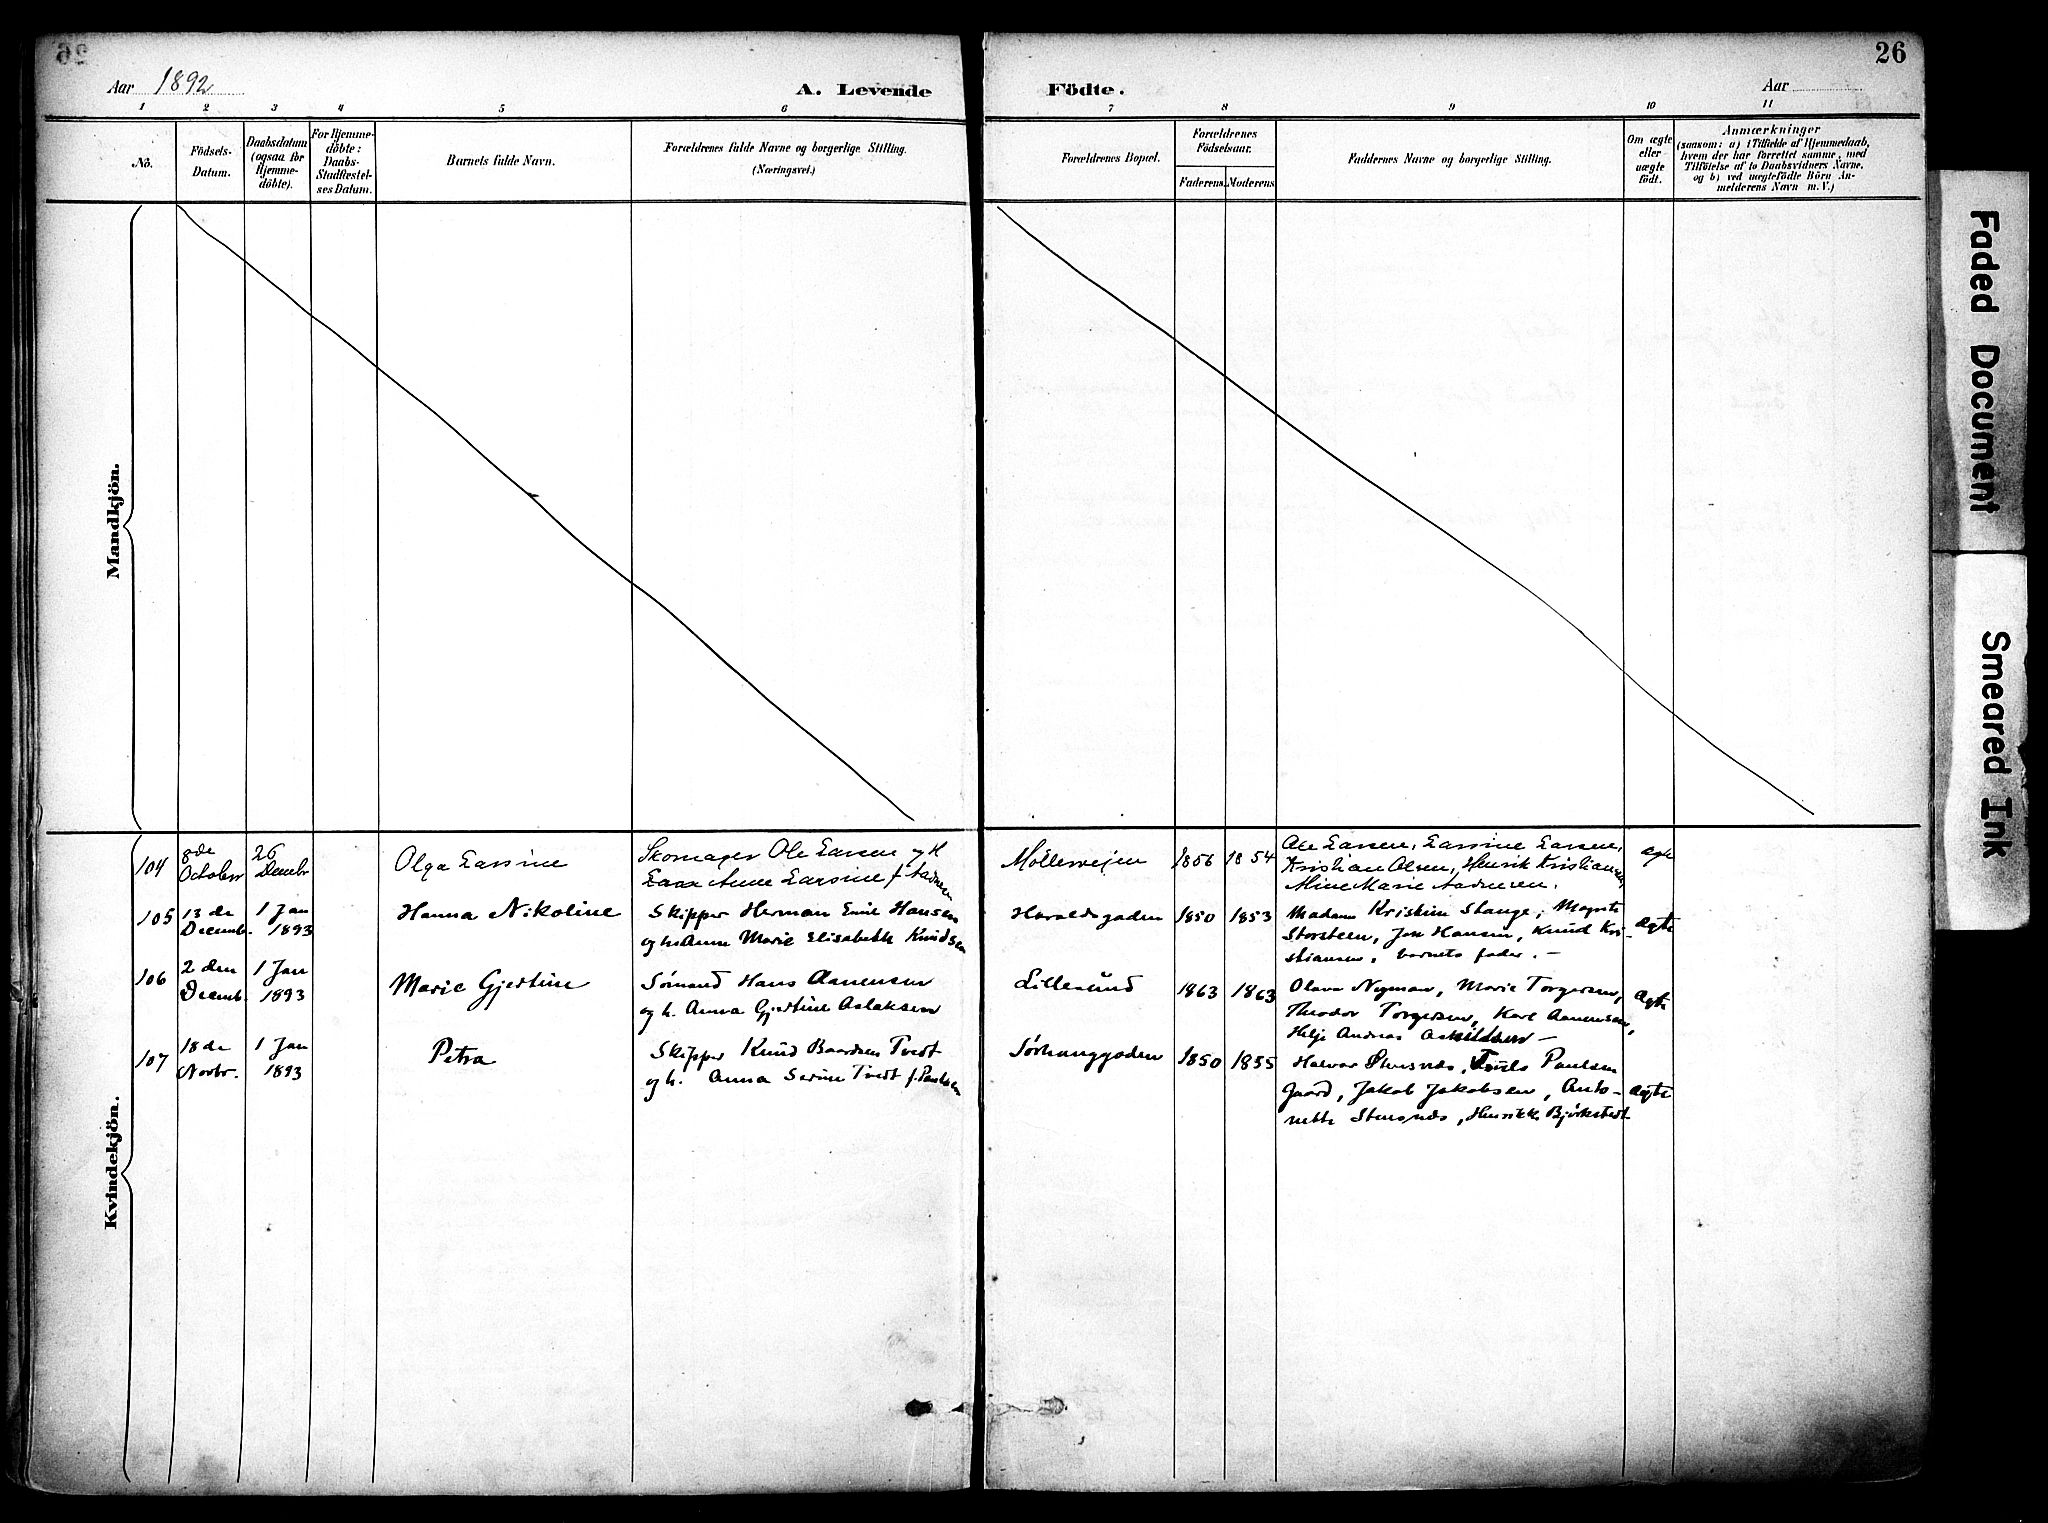 26
Aar 1892
A. Levende Födte.
Aar
1 2 3 4 5 6 7 8 9 10 11
Nö.
Födsels-Datum.
Daabsdatum (ogsaa for Hjemmedöbte).
For Hjemmedöbte: Daabs-Stadfæstelses Datum.
Barnets fulde Navn.
Forældrenes fulde Navne og borgerlige Stilling. (Næringsvei.)
Forældrenes Bopæl.
Forældrenes Födselsaar.
Faderens. Moderens.
Faddernes Navne og borgerlige Stilling.
Om ægte eller uægte födt.
Anmærkninger
(saasom: a) i Tilfælde af Hjemmedaab, hvem der har forrettet samme, med Tilföielse af to Daabsvidners Navne. og b) ved uægtefödte Börn Anmelderens Navn m. V.)
Mandkjön.
Kvindekjön.
104
8de October
26 Decembr
Olga Larsine
Skomager Ole Larsen og H
Larsine f.
Møllerveien
1856 1854
Ole Larsen, Larsine Larsen,
Kristian Olsen, Henrik Kristiansen,
Aline Marie
ægte
105
13 de Decemb.
1 Jan 1893
Hanna Nikoline
Skipper Herman Emil Hansen
og h. Anne Marie Elisabeth Knudsen
Haraldsgaden
1850 1853
Madam Kristine Stange,
Storsteen, Hansen, Knud Kri-
stiansen, barnets fader. –
Ægte
106
2 den Decemb.
1 Jan 1893
Marie Gjertine
Sømand Hans Aanensen
og h. Anna Gjertine Aslaksen
Lillesund
1863 1863
Olava Nyman, Marie Torgersen,
Theodor Torgersen, Karl Aanensen,
Helje Andreas Askildsen –
Ægte
107
18 de Novbr.
1 Jan 1893
Petra
Skipper Knud Baardsen Tvedt
og h. Anna Serine Tvedt f. Paulsen
Sørhauggaden
1850 1855
Halvor Paulsen
Gaard, Jakob Jakobsen, Anto-
nette Henrikke Bjørkstedt
Ægte
Faded Document
Smeared Ink